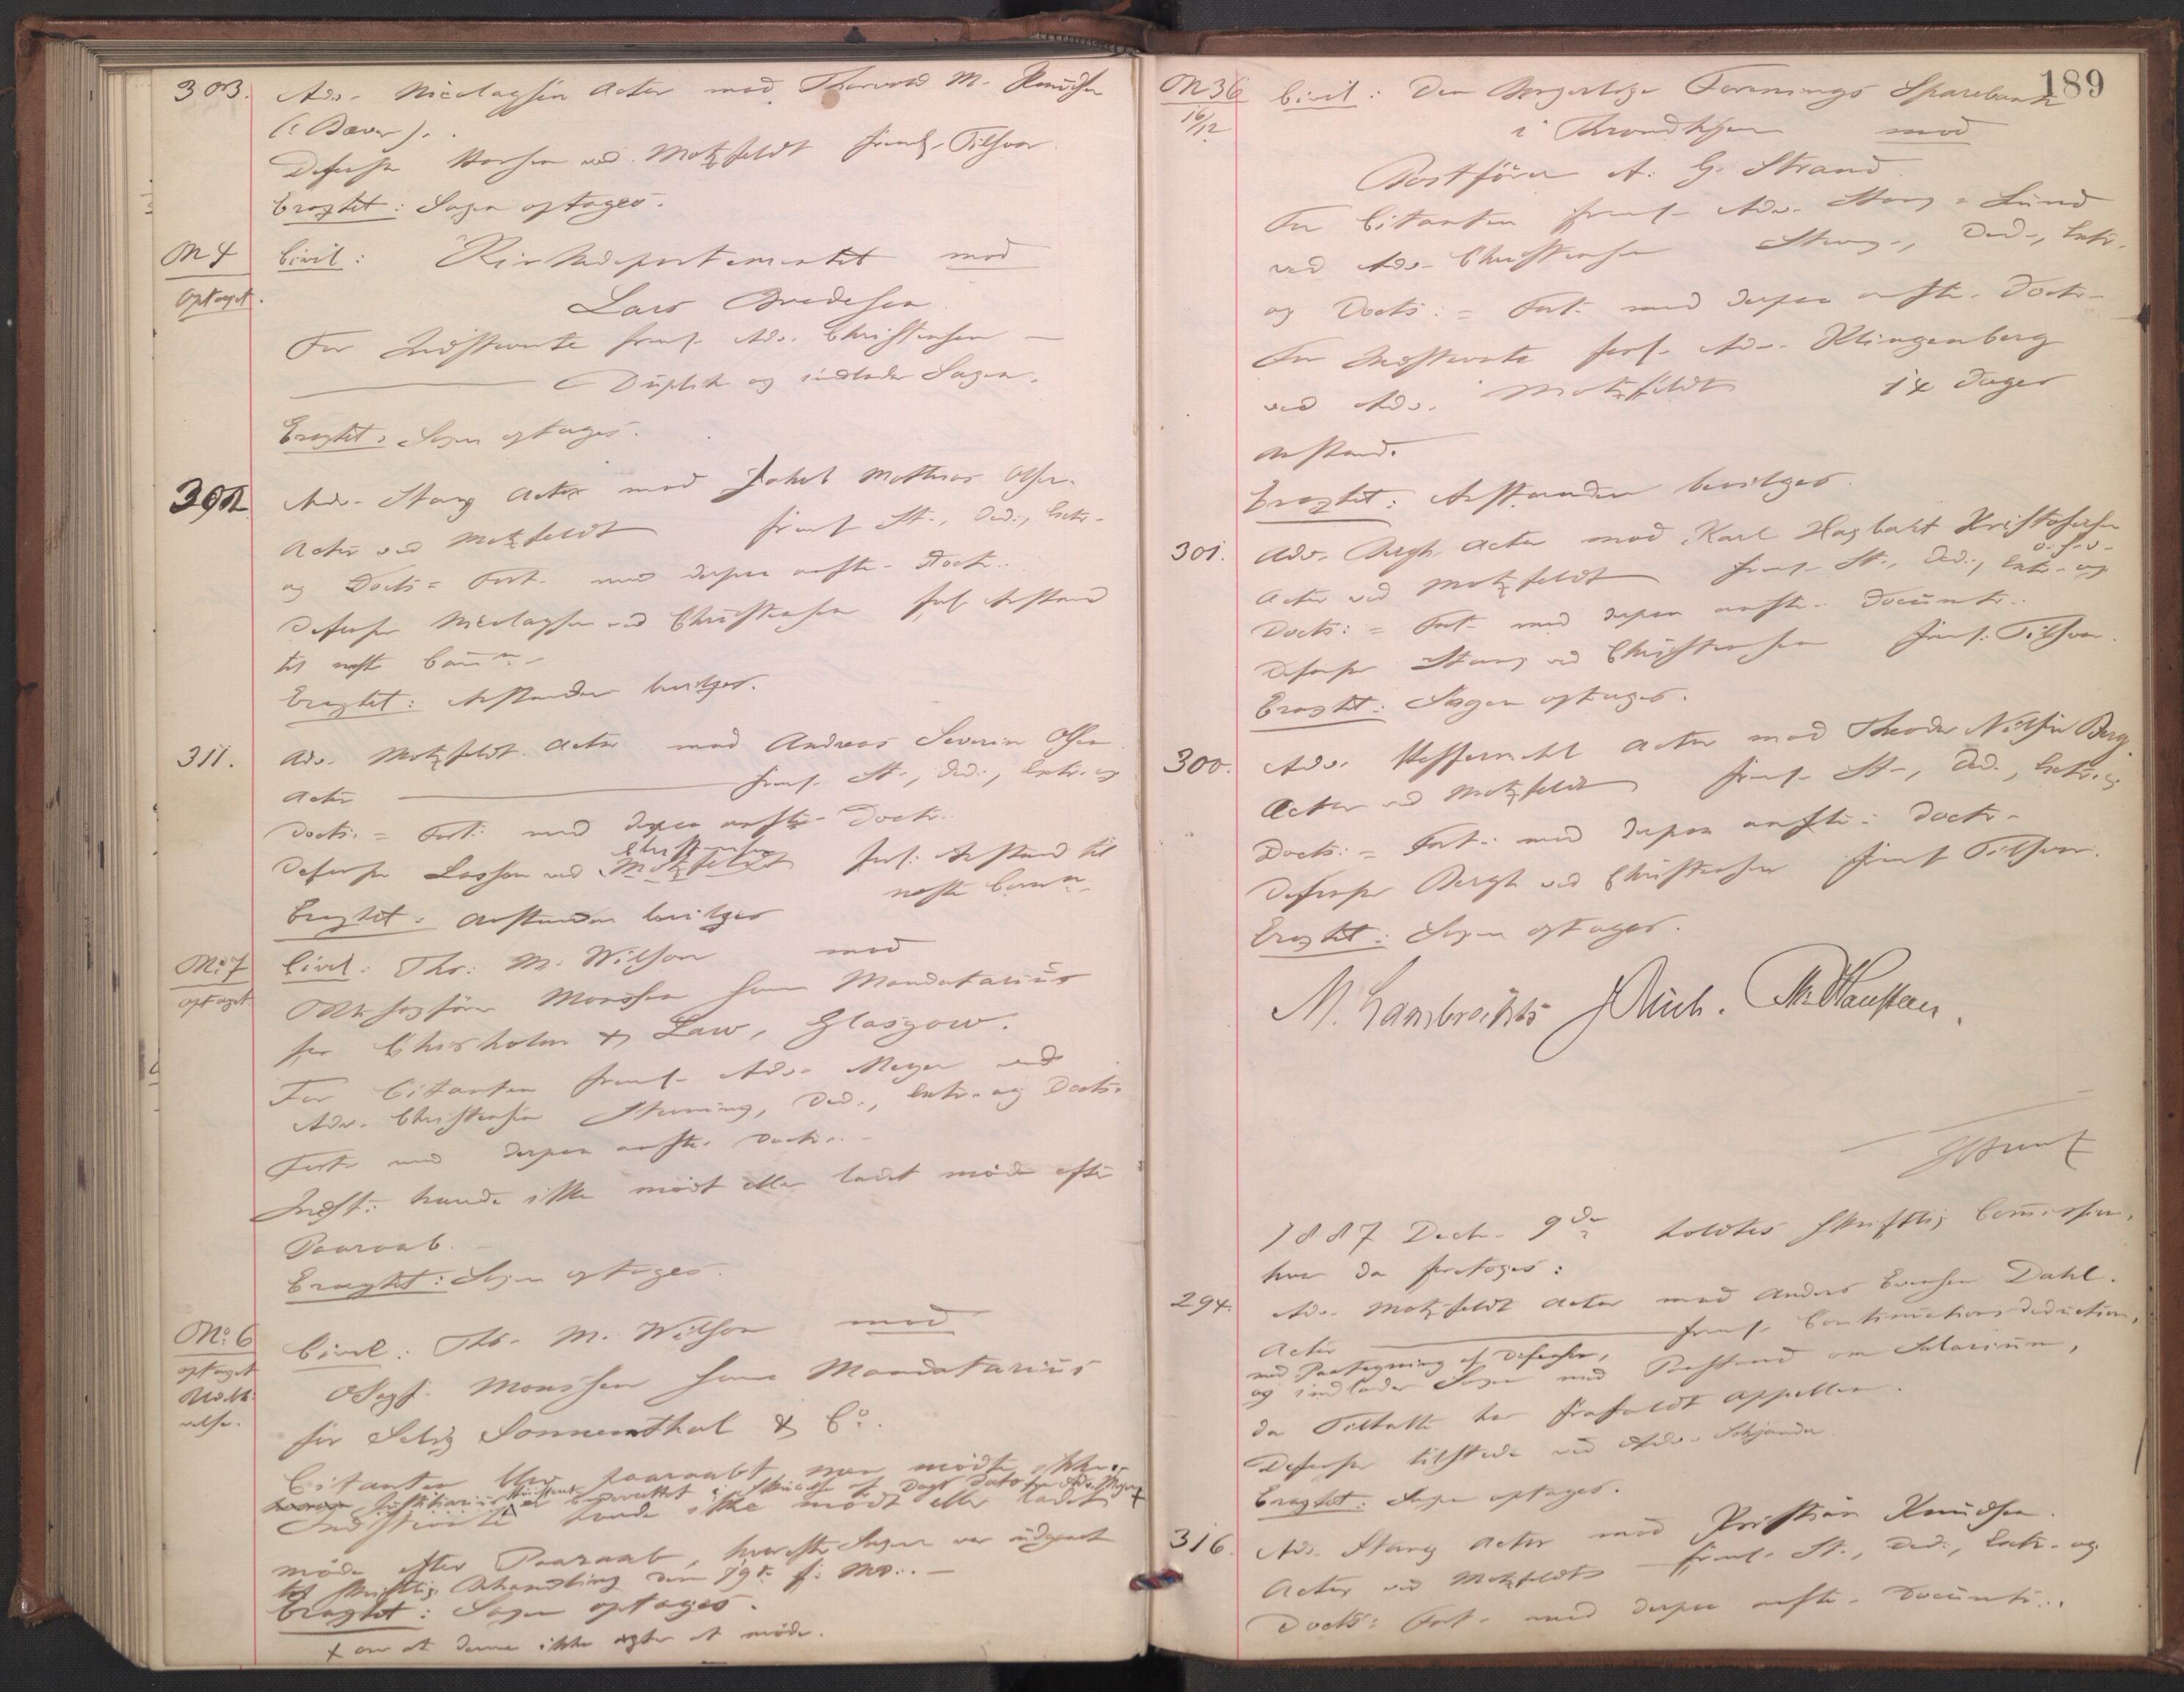 303. Adv. Nicolaysen Actor mod Thorvald M. Knudsen
(: Bæver).
Defensor Horsen ved Motzfeldt freml. Tilsvar.
Eragtet: Sagen optages.
No 4 Civil: Kirkedepartementet mod
optaget. Lars Bredesen
For Indstevnte freml. Adv. Christensen
Duplik og indlader Sagen.
Eragtet: Sagen optages.
Adv. Stang Actor mod Jakob Mathias Olsen.
Actor ved Motzfeldt freml. St., Ded., Extr.
og Docts = Fort. med derpaa anfte. Docts.
Defensor Nicolaysen ved Christensen forl. Anstand
til næste Comn.
Eragtet: Anstanden bevilges.
311. Adv. Motzfeldt Actor mod Andreas Severin Olsen
Actor freml. St., Ded., Extr. og
Docts. = Fort. med derpaa anfte. Docts.
Christensen
Defensor Lasson ved Motzfeldt forl. Anstand til
næste Comn.
Eragtet: Anstanden bevilges
No 7 Civil: Ths: M. Wilson mod
optaget Sagfører Monssen som Mandatarius
for Chisholm & Law, Glasgow.
For Citanten freml. Adv. Meyer ved
Adv. Christensen Stevning, Ded., Extr. og Docts.
Fort. med derpaa anfte. Docts.
Indst. havde ikke mødt eller ladet møde efter
Paaraab.
Eragtet: Sagen optages.
No 6 Civil: Ths. M. Wilson mod
optaget Osagf. Monssen som Mandatarius
for Selig Sonnenthal & Co.
Citanten blev paaraabt men mødte ikke.
Justitiarius er underrettet i Skrivelse af Dags Dato fra Adv. Meyer x
Indstevnte havde ikke mødt eller ladet
møde efter Paaraab, hvorefter Sagen var udgaaet
til skriftlig Behandling den 19de f. M.
Eragtet: Sagen optages.
x om at denne ikke agter at møde.
189
No 36 Civil: Den Borgerlige Forenings Sparebank
16/12 i Throndhjem mod
Postfører A. G. Strand.
For Citanten freml. Adv. Stang = Lund
ved Adv. Christensen Stevng., Ded., Extr.
og Docts: = Fort. med derpaa anfte. Docts.
For Indstevnte forl. Adv. Klingenberg
ved Adv. Motzfeldt 14 Dages
Anstand.
Eragtet: Anstanden bevilges.
301. Adv. Bergh Actor mod Karl Hagbart Kristofersen
o. fl.
Actor ved Motzfeldt freml. St., Ded., Extr. og
Docts: = Fort. med derpaa anfte. Documtr.
Defensor Stang ved Christensen freml. Tilsvar.
Eragtet: Sagen optages.
300. Adv. Heffermehl Actor mod Theodor Nilsen Berg.
Actor ved Motzfeldt freml. St., Ded., Extr. og
Docts: = Fort. med derpaa anfte. Docts.
Defensor Bergh ved Christensen freml. Tilsvar.
Eragtet: Sagen optages.
M. Lambrechts
1887 Decbr. 9de holdtes skriftlig Commission,
hvor da foretoges:
294. Adv. Motzfeldt Actor mod Anders Evensen Dahl.
Actor freml. Continuationsdeduction,
med Paategning af Defensor,
og indlader Sagen med Paastand om Salarium,
da Tiltalte har frafaldt Appellen.
Defensor tilstede ved Adv. Schjander.
Eragtet: Sagen optages.
316. Adv. Stang Actor mod Kristian Knudsen.
Actor ved Motzfeldt freml. St., Ded., Extr. og
Docts: Fort. med derpaa anfte. Documtr.